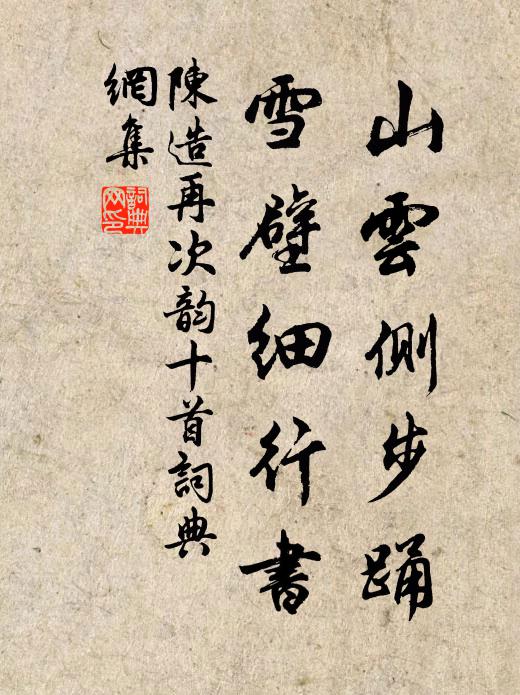 山雲側步踊
雪壁細行書
陳造再次韵十首詞典
網集
詞典网印